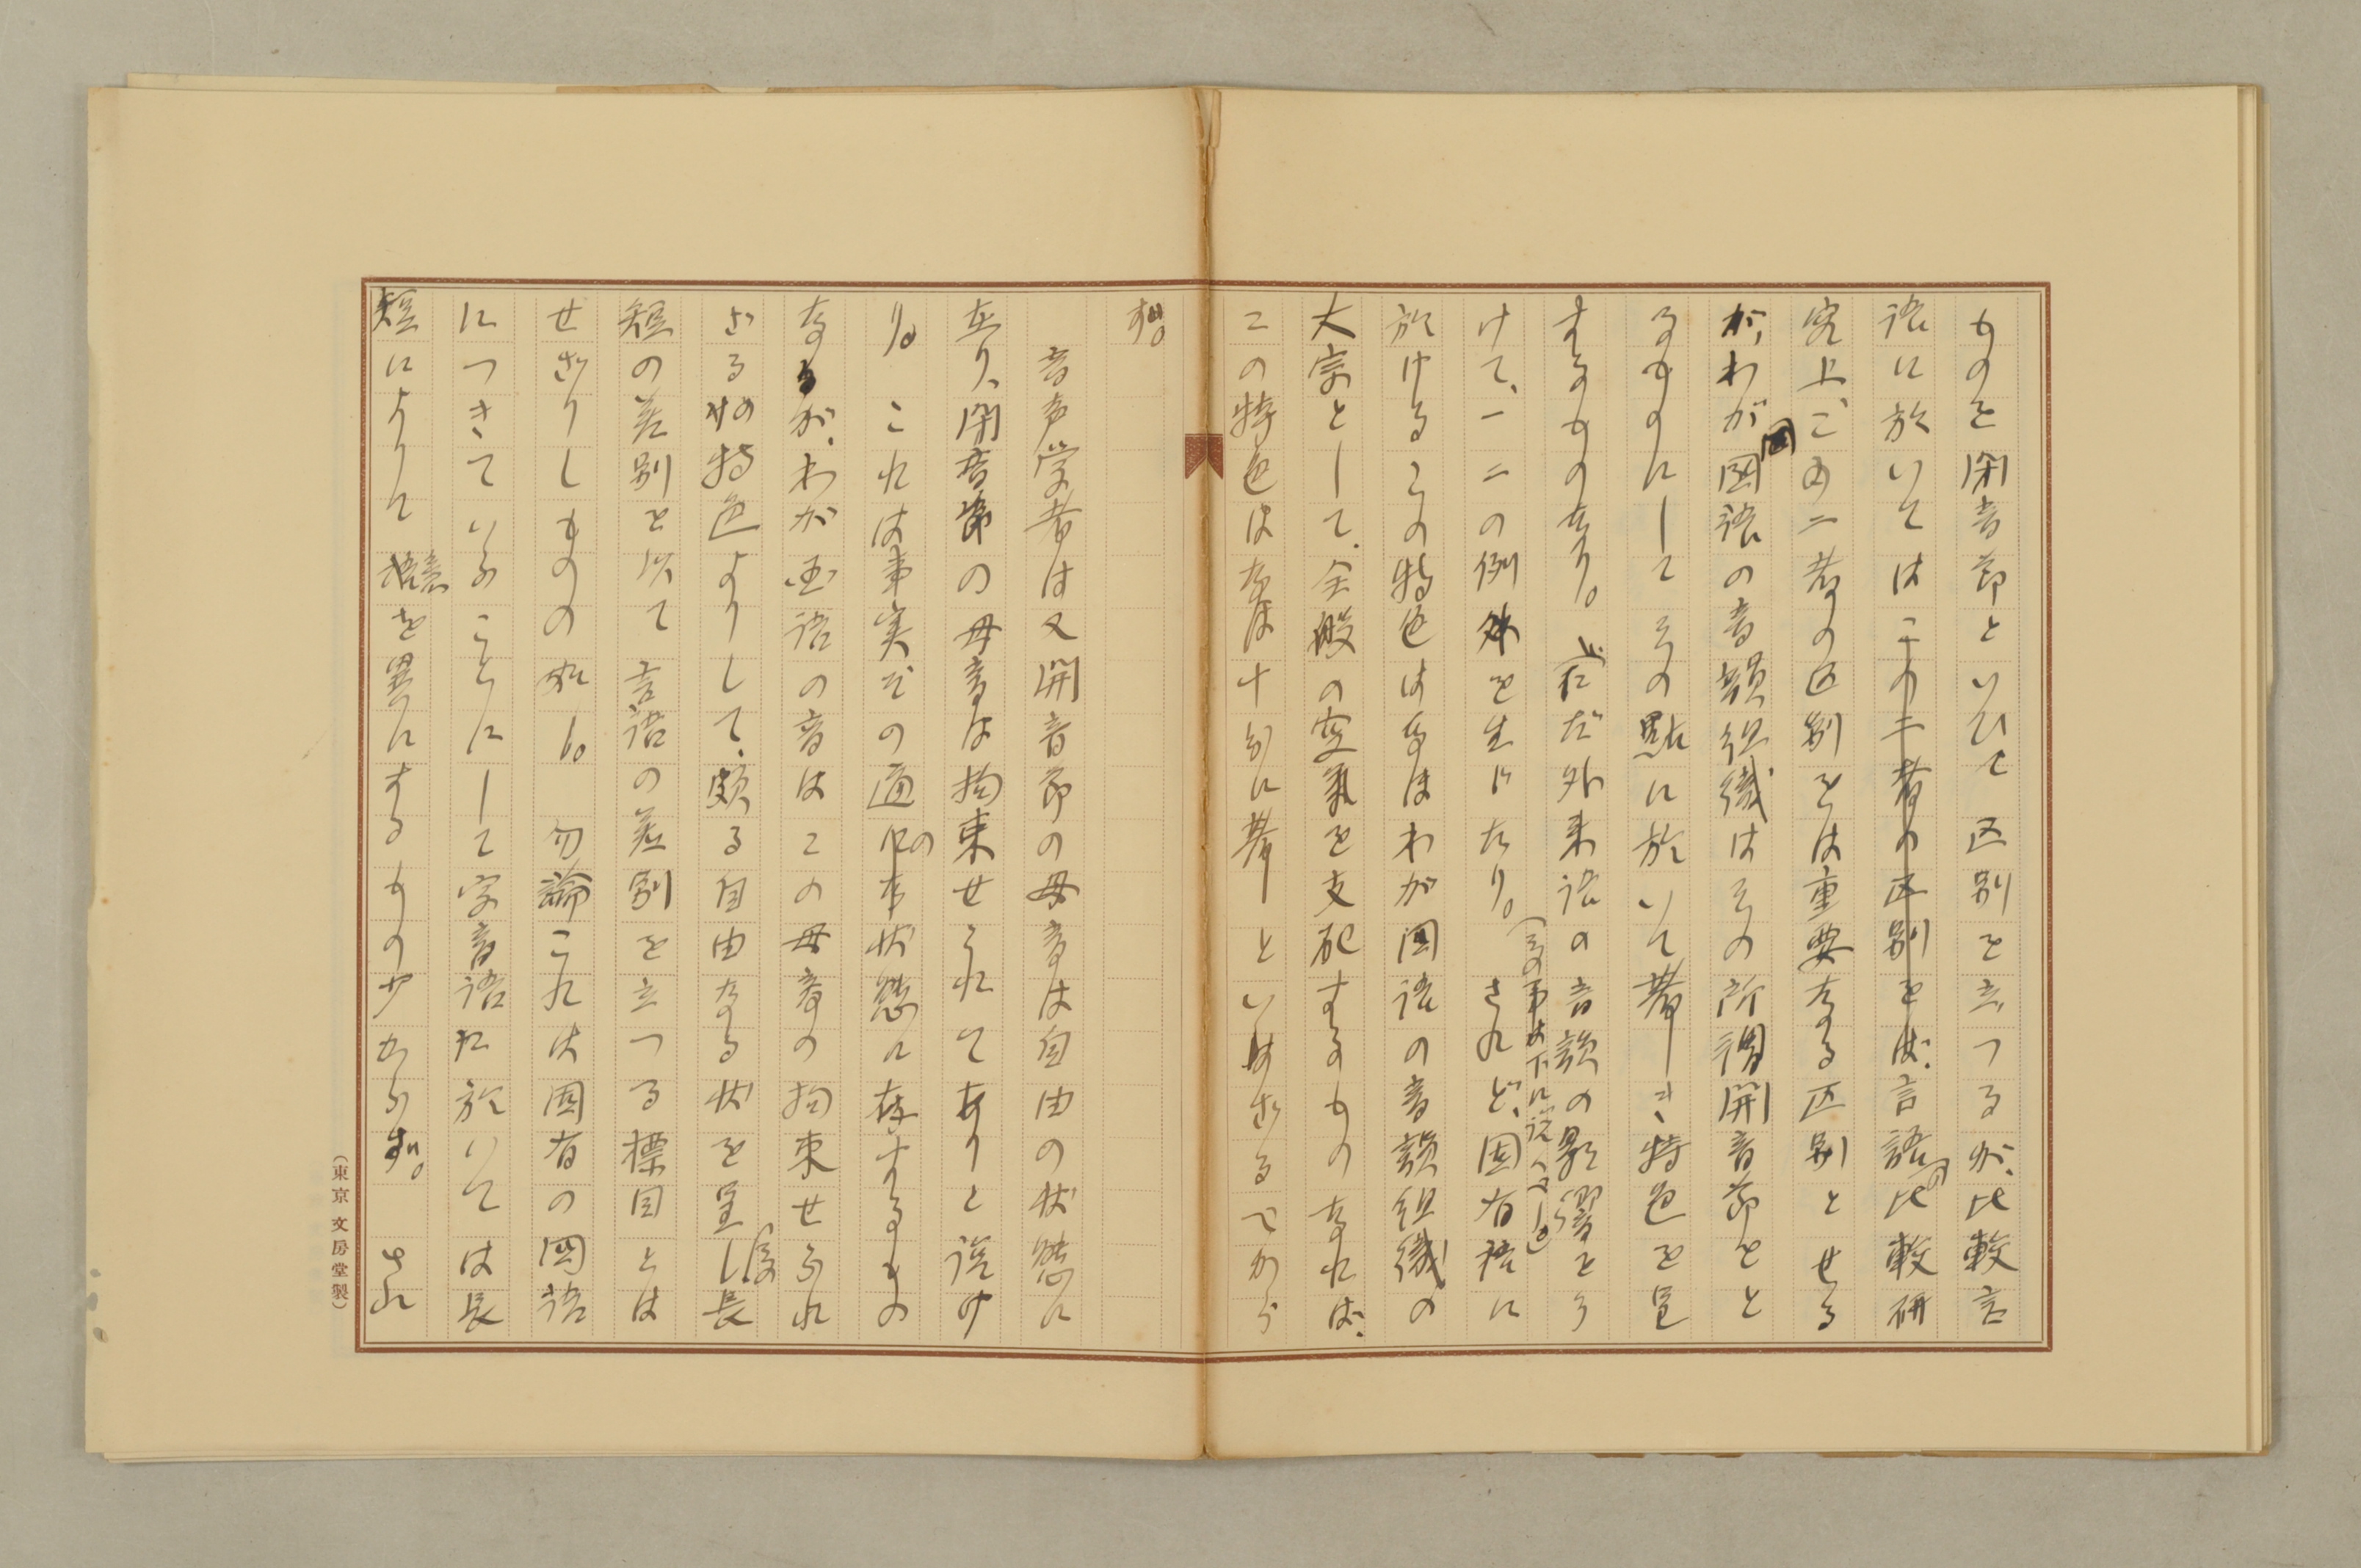 ものを閉音節といひて区別を立つるが、比較言
語に於いてはこの二者の区別をば、言語の比較研
究上、この二者の区別をば重要なる区別とせる
が、わが国語の音韻組織はその所謂開音節をと
るものにしてその點に於いて著しき特色を呈
するものなり。ただ外来語の音韻の影響をう
けて、一二の例外を生じたり。されど、固有語に
(その事は下に説くべし。)
於けるこの特色はなほわが国語の音韻組織の
大宗として、全般の空氣を支配するものなれば、
この特色はなほ十分に著しといはざるべから
ず。
音声学者は又開音節の母音は自由の状態に
在り、閉音節の母音は拘束せられてありと説け
り。これは事実その通りの状態に存するもの
なるが、わが国語の音はこの母音の拘束せられ
ざる特色よりして、頗る自由なる状を呈し、長
短の差別を以て言語の差別を立つる標目とは
せざりしものの如し。勿論これは固有の国語
につきていふことにして字音語に於いては長
短によりて意を異にするもの少からず。され
(東京 文房堂製)